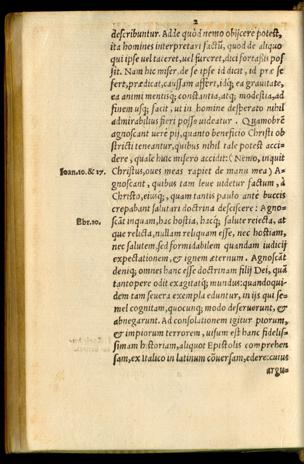 2
describuntur. Adde quòd nemo obijcere potest,
ita homines interpretari factũ, quod de aliquo
qui ipse uel taceret, uel fureret, dici fortaßis pos
sit. Nam hic miser, de se ipse id dicit, id præ se
fert, prædicat, caussam affert, idq́; ea grauitate,
ea animi mentisq́; constantia, atq; modestia, ad
finem usq; facit, ut in homine desperato nihil
admirabilius fieri posse uideatur. Quamobrẽ
agnoscant uerè pij, quanto beneficio Christi ob
stricti teneantur, quibus nihil tale potest acci
dere, quale huic misero accidit: (Nemo, inquit
Ioan.10. & 17. Christus, oues meas rapiet de manu mea) A=
gnoscant, quibus tam leue uidetur factum, à
Christo, eiusq́;, quam tantis paulo ante buccis
crepabant salutari doctrina desciscere: Agno=
Ebr.10. scãt inquam, hac hostia, hacq́; salute reiecta, at
que relicta, nullam reliquam esse, nec hostiam,
nec salutem, sed formidabilem quandam iudicij
expectationem, & ignem æternum. Agnoscãt
deniq; omnes hanc esse doctrinam filij Dei, quã
tantopere odit exagitatq́; mundus: quandoqui=
dem tam seuera exempla eduntur, in ijs qui se=
mel cognitam, quocunq; modo deseruerunt, &
abnegarunt. Ad consolationem igitur piorum,
& impiorum terrorem, uisum est hanc fidelis=
simam historiam, aliquot Epistolis comprehen
sam, ex Italico in latinum cõuersam, edere: cuius
argu=